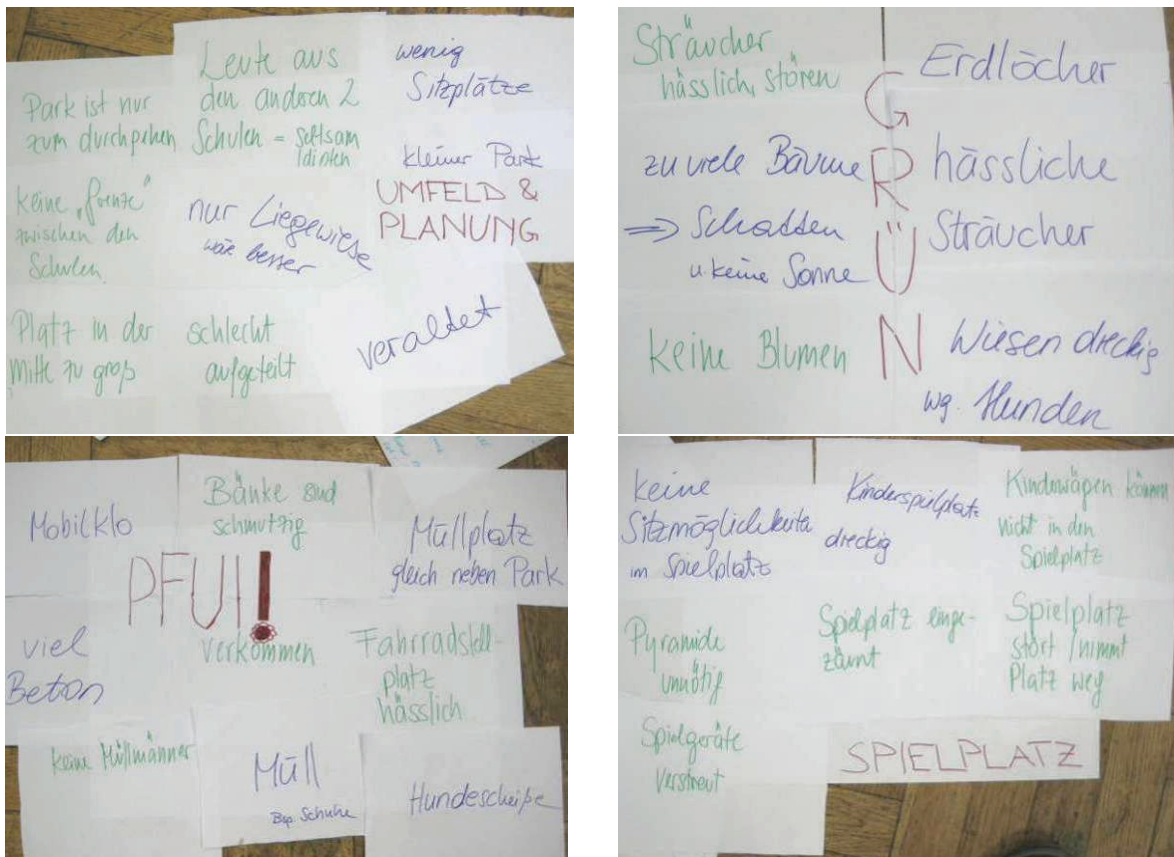 Park ist nur
zum durchgehen
Leute aus
den anderen 2
Schulen = seltsam
Idioten
wenig
Sitzplätze
kleiner Park
UMFELD &
PLANUNG
keine „Grenze“
zwischen den
Schulen
nur Liegewiese
wär besser
Platz in der
Mitte zu groß
schlecht
aufgeteilt
veraltet
Sträucher
hässlich, stören
Erdlöcher
GRÜN
zu viele Bäume
=> Schatten
u. keine Sonne
hässliche
Sträucher
keine Blumen
Wiesen dreckig
wg. Hunden
Mobilklo
Bänke sind
schmutzig
Müllplatz
gleich neben Park
PFUI!
viel
Beton
verkommen
Fahrradstell-
platz
hässlich
keine Müllmänner
Müll
Bsp. Schuhe
Hundescheiße
keine
Sitzmöglichkeiten
im Spielplatz
Kinderspielplatz
dreckig
Kinderwägen können
nicht in den
Spielplatz
Pyramide
unnötig
Spielplatz einge-
zäunt
Spielplatz
stört / nimmt
Platz weg
Spielgeräte
verstreut
SPIELPLATZ